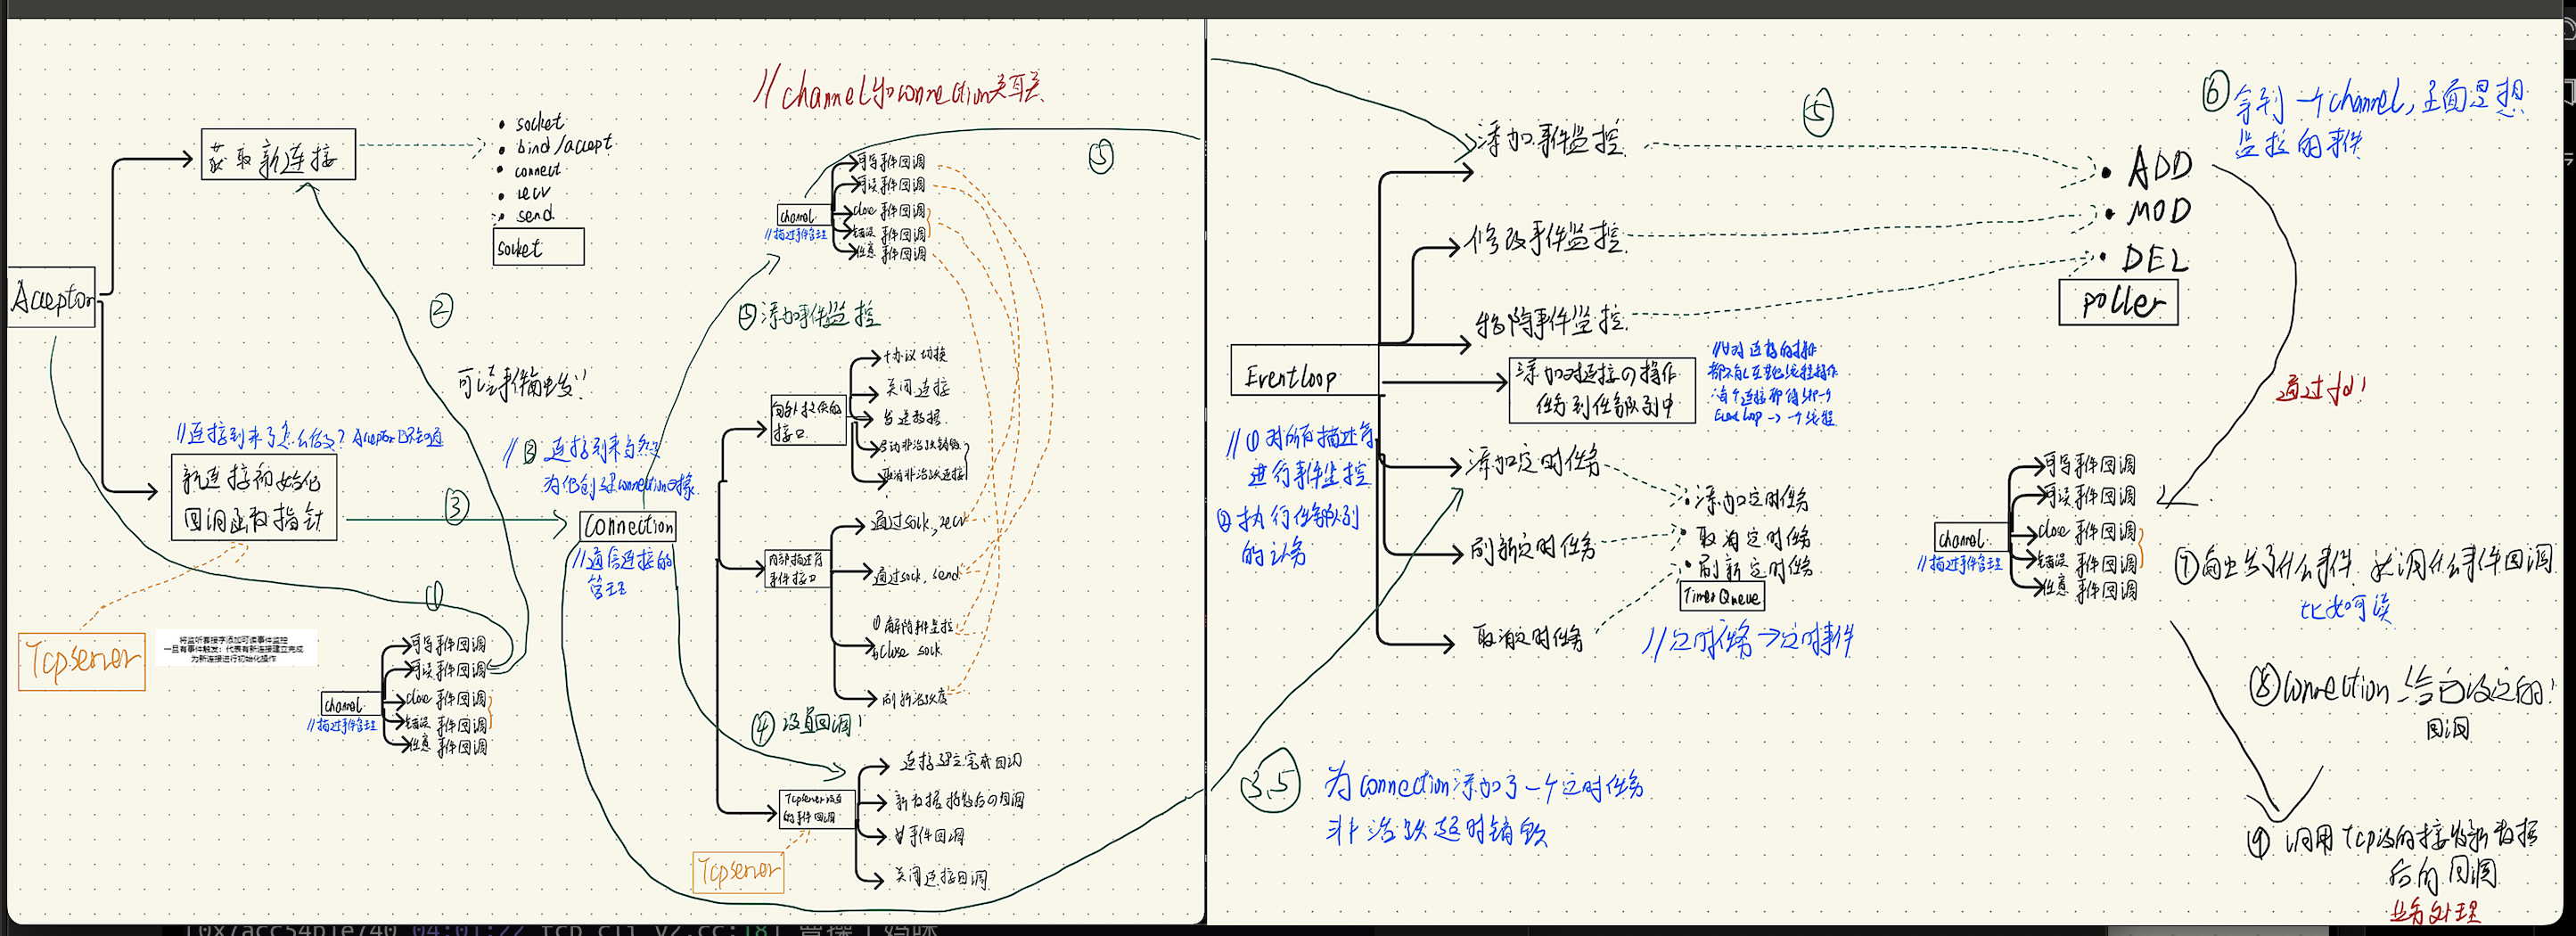 //channel与connection关联
获取新连接
socket
bind/accept
connect
recv
send
socket
Acceptor
②
可读事件触发!
新连接初始化
回调函数指针
③
①
Tcpserver
将监听套接字添加可读事件监控
一旦有事件触发：代表有新连接建立完成
为新连接进行初始化操作
channel
//描述事件管理
可写事件回调
可读事件回调
close 事件回调
错误 事件回调
任意 事件回调
channel
//描述事件管理
可写事件回调
可读事件回调
close 事件回调
错误 事件回调
任意 事件回调
⑤
⑤添加事件监控
为他创建connection对象
connection
//通信连接的
管理
向外提供的
接口
协议切换
关闭连接
发送数据
启动非活跃销毁
取消非活跃连接
内部描述符
事件接口
通过sock, recv
通过sock, send
①解除事件监控
②close sock.
刷新活跃度
④ 设置回调!
Tcpserver设置
的事件回调
连接建立完成回调
新数据接收后的回调
事件回调
关闭连接回调
Tcpserver
Eventloop
//①对所有描述符
进行事件监控
②执行任务队列
的任务
添加事件监控
修改事件监控
移除事件监控
添加对连接の操作
任务到任务队列中
添加定时任务
刷新定时任务
取消定时任务
⑤
ADD
MOD
DEL
poller
添加定时任务
取消定时任务
刷新定时任务
TimerQueue
//定时任务→定时事件
3.5
为connection添加了一个定时任务
非活跃超时销毁
⑥拿到一个channel,里面是想
监控的事件
通过fd!
channel
//描述事件管理
可写事件回调
可读事件回调
close 事件回调
错误 事件回调
任意 事件回调
⑦触发了什么事件 就调什么事件回调
比如可读
⑧connection给它设定的!
回调
⑨ 调用Tcp设的接收新数据
后的回调
业务处理